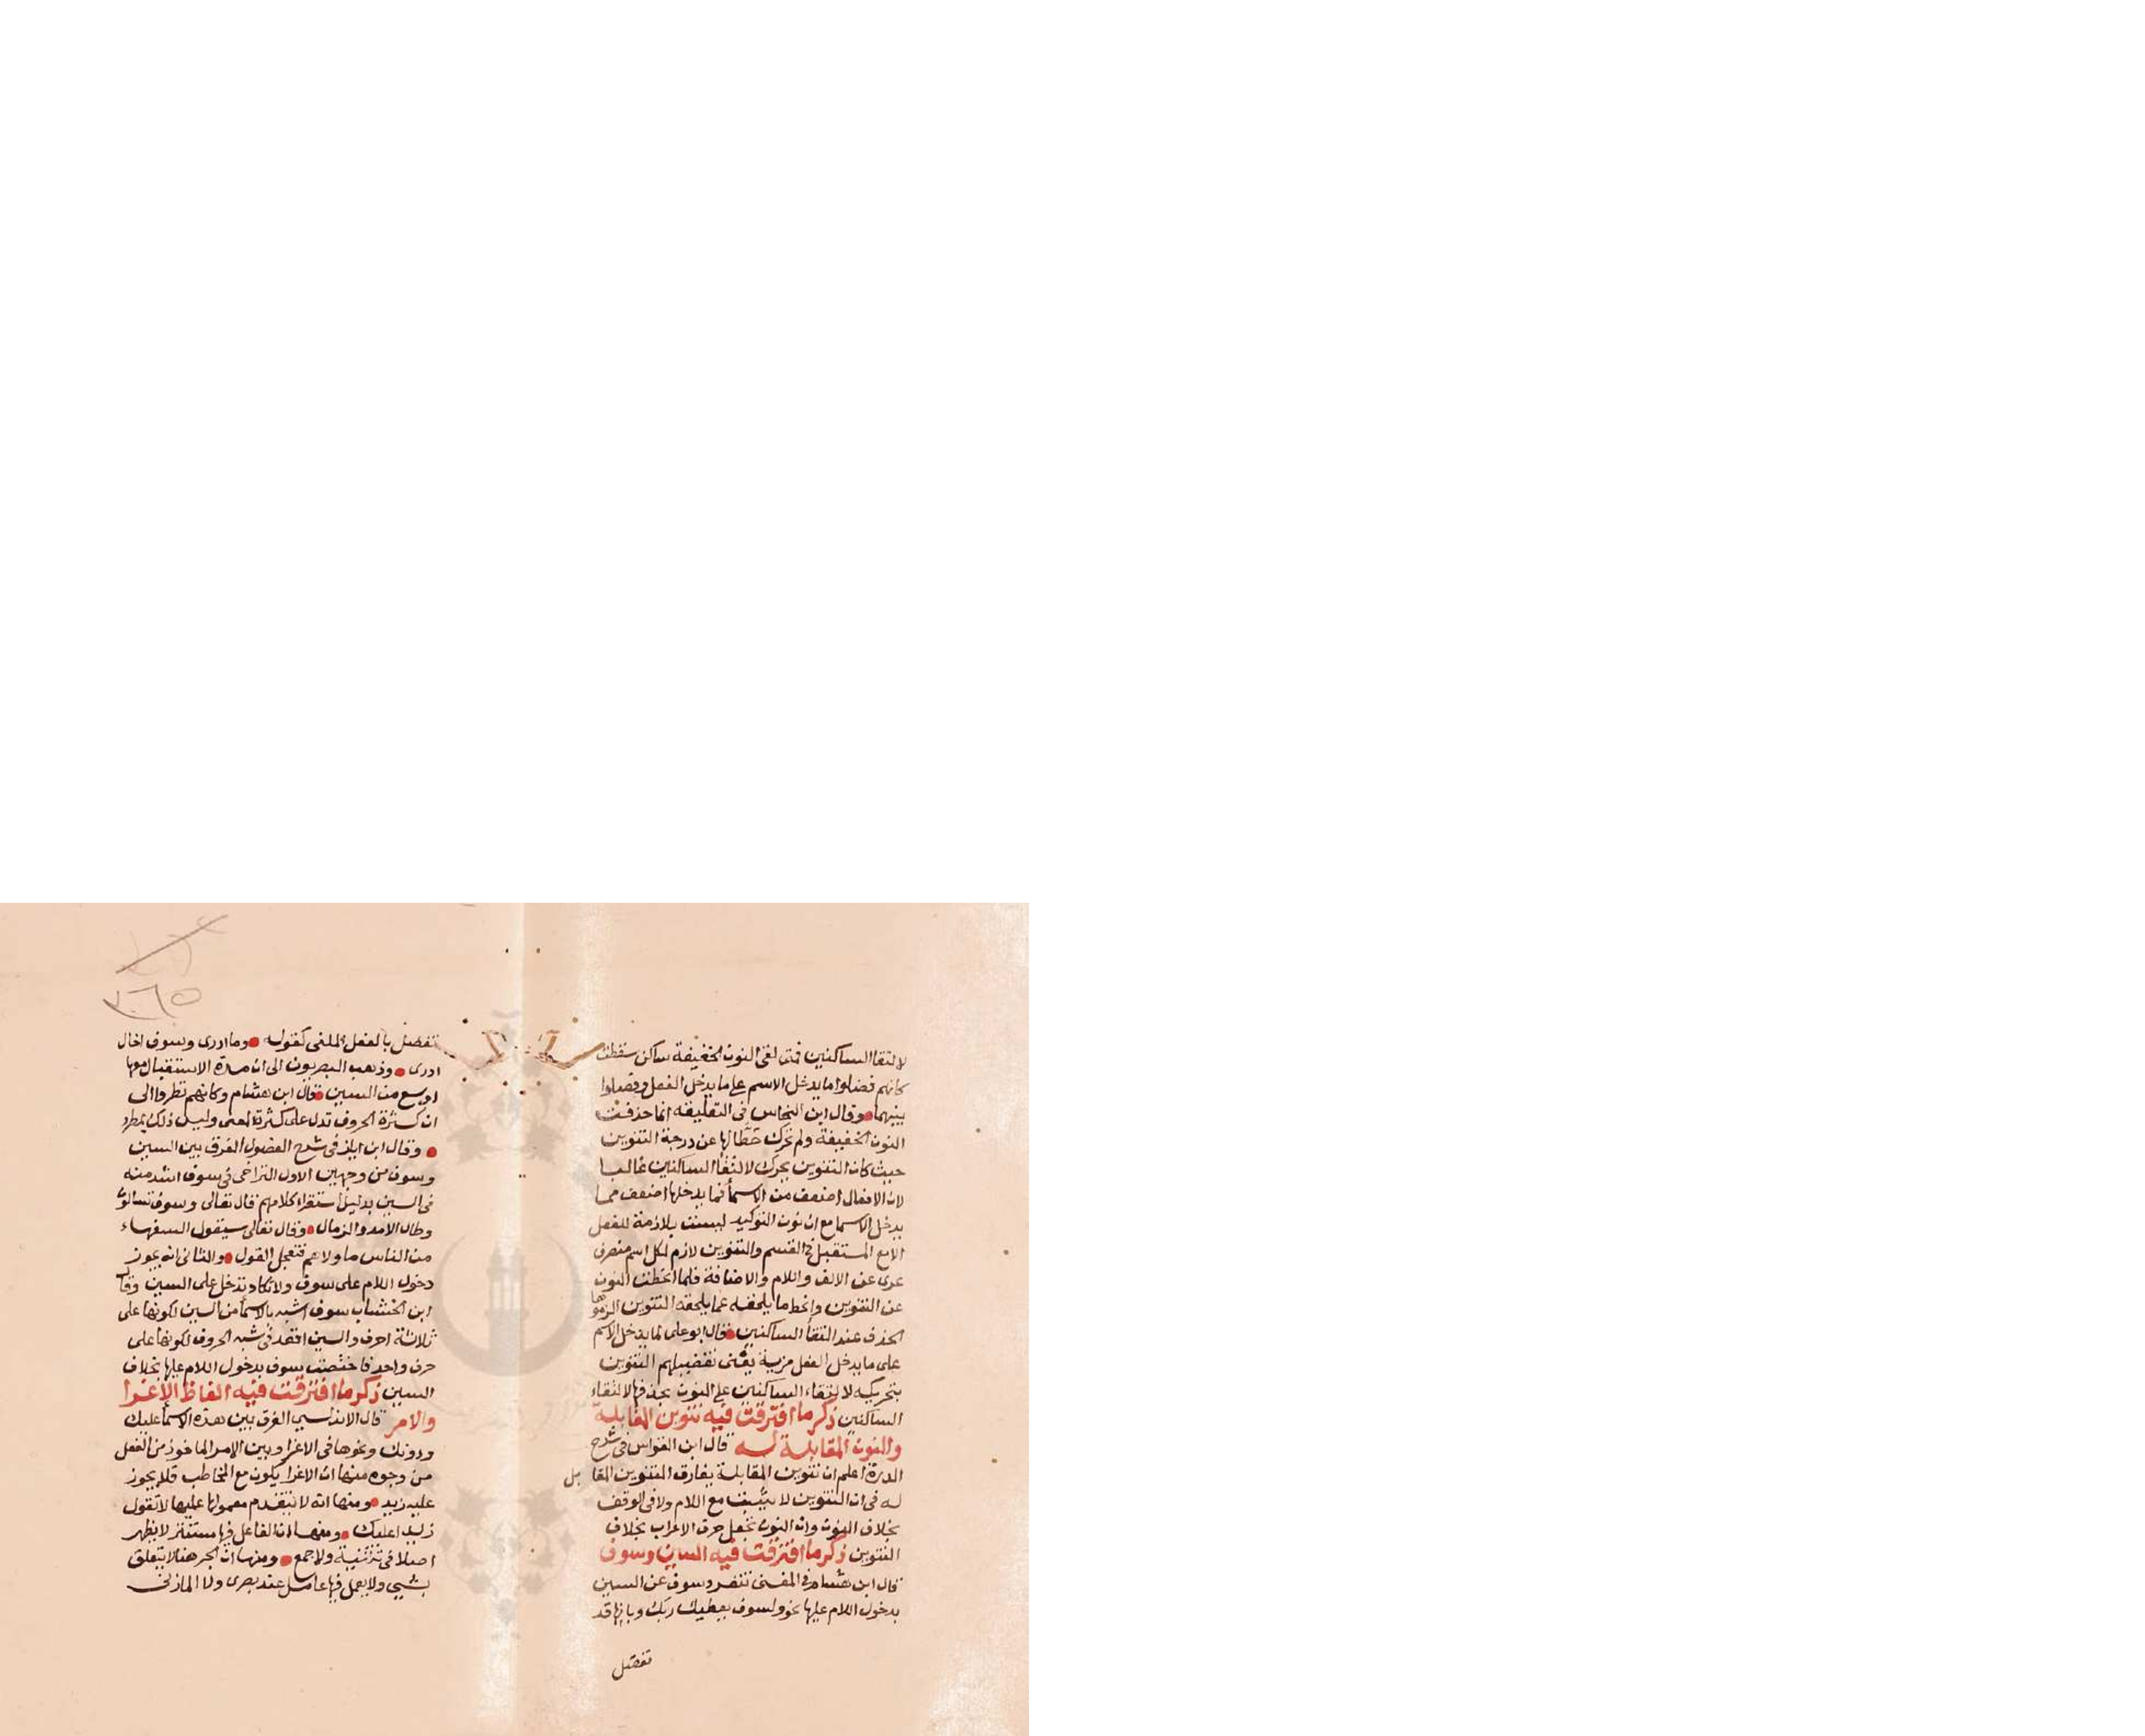 لالتقا الساكنين فتى لقى النون الخفيفة ساكن سقطت
كانهم فضلوا ما يدخل الاسم على ما يدخل الفعل وفصلوا
بينهما وقال ابن النحاس فى التعليقه انما حذفت
النون الخفيفة ولم تحرك حطا لها عن درجة التنوين
حيث كان التنوين يحرك لالتقا الساكنين غالبا
لان الافعال اضعف من الاسما فما يدخلها اضعف مما
يدخل الاسما مع ان نون التوكيد ليست بلازمة للفعل
الا مع المستقبل فى القسم والتنوين لازم لكل اسم منصرف
عرى عن الالف واللام والاضافة فلما انحطت النون
عن التنوين وانحط ما يلحقه عما يلحقه التنوين الزموها
الحذف عند التقا الساكنين قال ابو على لما يدخل الاسم
على ما يدخل الفعل مزية يعنى تفضيلهم التنوين
بتحريكه لالتقاء الساكنين على النون بحذفها لالتقاء
الساكنين ذكر ما افترقت فيه تنوين المقابلة
والنون المقابلة له قال ابن القواس فى شرح
الدرة اعلم ان تنوين المقابلة يفارق التنوين المقا بل
له فى ان التنوين لا يثبت مع اللام ولا فى الوقف
بخلاف النون وان النون تجعل حرف الاعراب بخلاف
التنوين ذكر ما افترقت فيه السين وسوف
قال ابن هشام فى المغنى تنفرد سوف عن السين
بدخول اللام عليها نحو ولسوف يعطيك ربك وبانها قد
تفصل
٣٦٥
تفصل بالفعل الملغى كقوله وما ادرى وسوف اخال
ادرى وذهب البصريون الى ان مدة الاستقبال معها
اوسع من السين قال ابن هشام وكانهم نظروا الى
ان كثرة الحروف تدل على كثرة المعنى وليس ذلك بمطرد
وقال ابن اياز فى شرح الفصول الفرق بين السين
وسوف من وجهين الاول التراخى فى سوف اشد منه
فى السين بدليل استقراء كلامهم قال تعالى وسوف تسالون
وطال الامد والزمال وقال تعالى سيقول السفهاء
من الناس ما ولاهم فتعجل القول والثانى انه يجوز
دخول اللام على سوف ولا تكاد تدخل على السين وقال
ابن الخشاب سوف اشبه بالاسما من السين لكونها على
ثلاثة احرف والسين اقعد فى شبه الحروف لكونها على
حرف واحد فاختصت سوف بدخول اللام عليها بخلاف
السين ذكر ما افترقت فيه الفاظ الاغرا
والامر قال الاندلسى الفرق بين هذه الاسما عليك
ودونك ونحوها فى الاغرا وبين الامر الماخوذ من الفعل
من وجوه منها ان الاغرا يكون مع المخاطب فلا يجوز
عليه زيد ومنها انه لا يتقدم معمولها عليها لا تقول
زيدا عليك ومنها ان الفاعل فيها مستتر لا يظهر
اصلا فى تثنية ولا جمع ومنها ان الجر هنا لا يتعلق
بشى ولا يعمل فيها عامل عند بصرى ولا المازنى